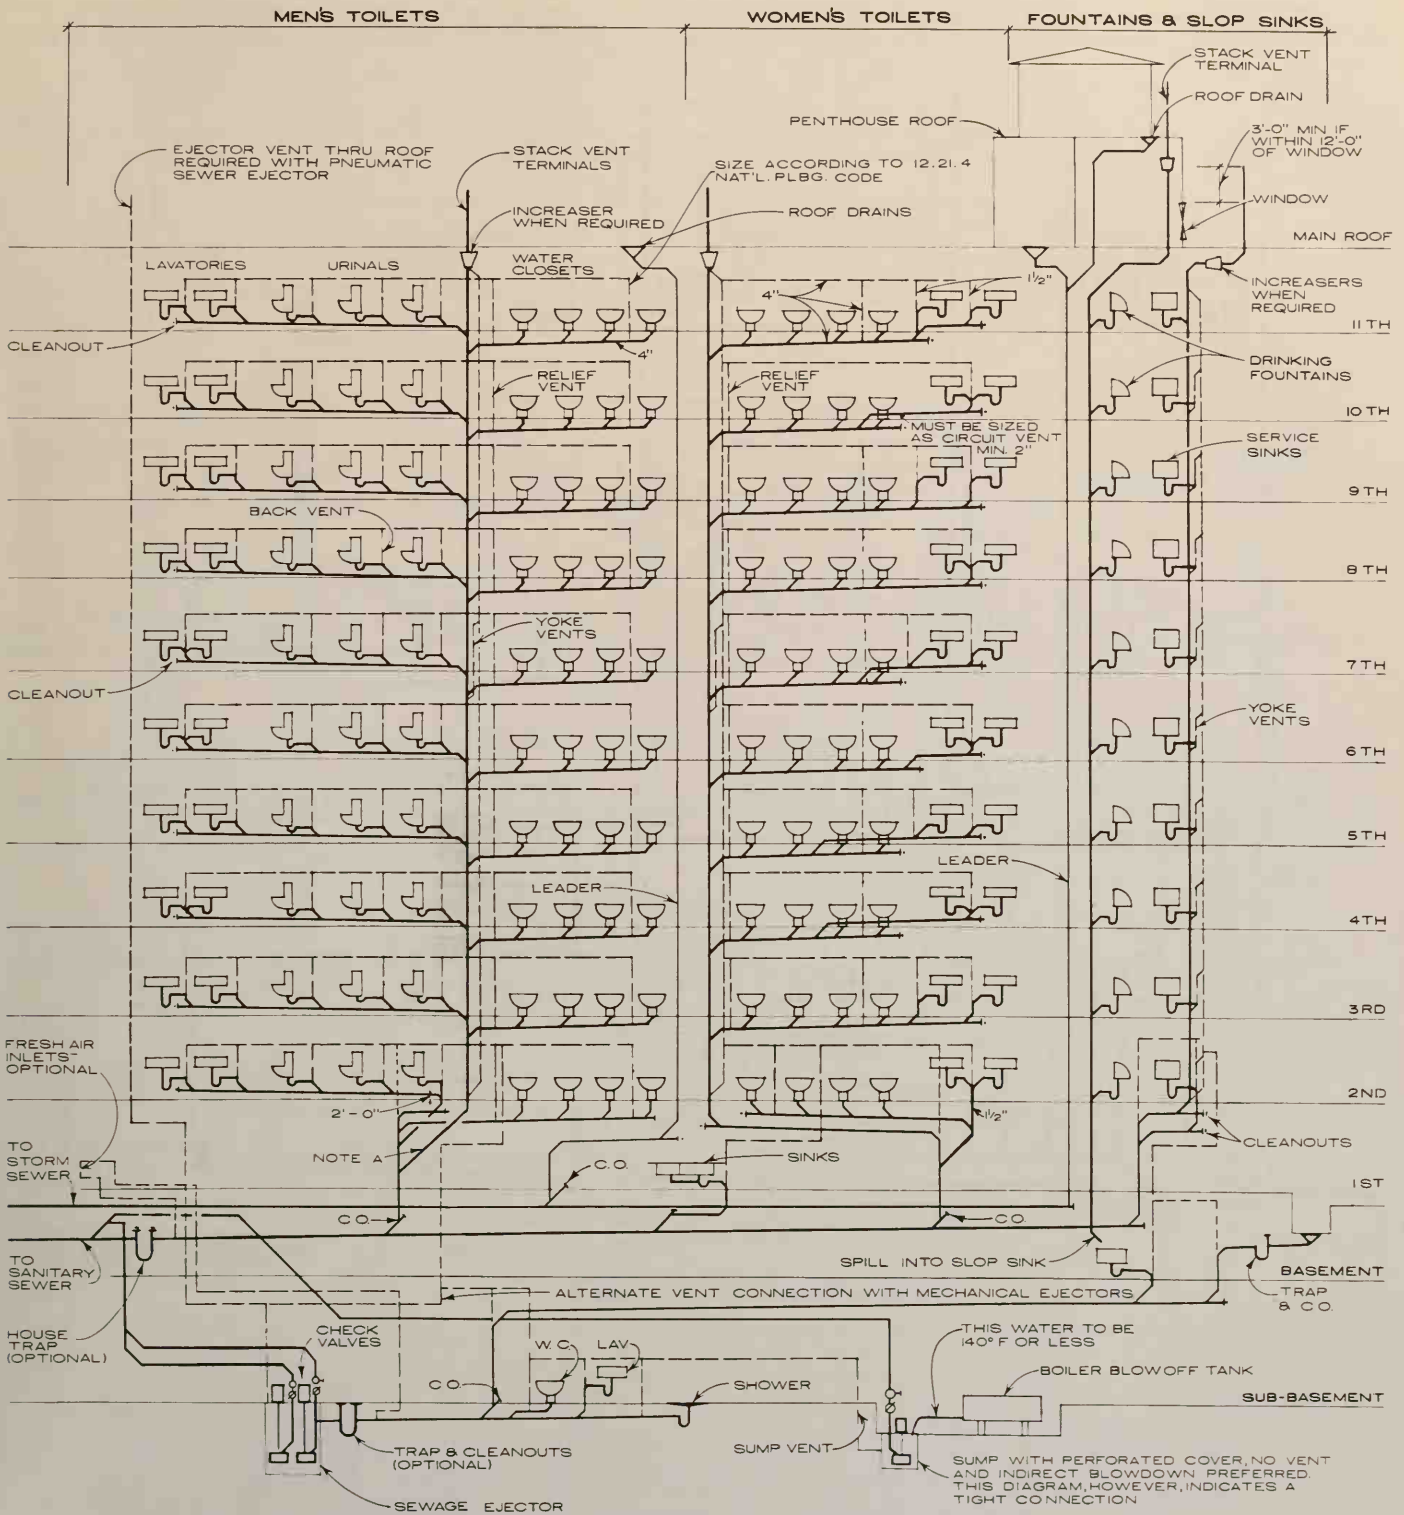 MEN'S TOILETS
WOMEN'S TOILETS
FOUNTAINS & SLOP SINKS
STACK VENT
TERMINAL
ROOF DRAIN
PENTHOUSE ROOF
3'-0" MIN IF
WITHIN 12'-0"
OF WINDOW
EJECTOR VENT THRU ROOF
REQUIRED WITH PNEUMATIC
SEWER EJECTOR
STACK VENT
TERMINALS
SIZE ACCORDING TO 12.21.4
NAT'L. PLBG. CODE
INCREASER
WHEN REQUIRED
ROOF DRAINS
WINDOW
MAIN ROOF
LAVATORIES
URINALS
WATER
CLOSETS
4"
1½"
INCREASERS
WHEN
REQUIRED
11TH
CLEANOUT
4"
RELIEF
VENT
RELIEF
VENT
DRINKING
FOUNTAINS
10TH
MUST BE SIZED
AS CIRCUIT VENT
MIN. 2"
SERVICE
SINKS
9TH
BACK VENT
8TH
YOKE
VENTS
7TH
CLEANOUT
YOKE
VENTS
6TH
5TH
LEADER
LEADER
4TH
3RD
FRESH AIR
INLETS-
OPTIONAL
2'-0"
1½"
2ND
CLEANOUTS
TO
STORM
SEWER
NOTE A
C.O.
SINKS
1ST
C.O.
C.O.
TO
SANITARY
SEWER
SPILL INTO SLOP SINK
BASEMENT
TRAP
& C.O.
ALTERNATE VENT CONNECTION WITH MECHANICAL EJECTORS
HOUSE
TRAP
(OPTIONAL)
CHECK
VALVES
THIS WATER TO BE
140° F OR LESS
W.C.
LAV
BOILER BLOWOFF TANK
C.O.
SHOWER
SUB-BASEMENT
TRAP & CLEANOUTS
(OPTIONAL)
SUMP VENT
SUMP WITH PERFORATED COVER, NO VENT
AND INDIRECT BLOWDOWN PREFERRED.
THIS DIAGRAM, HOWEVER, INDICATES A
TIGHT CONNECTION
SEWAGE EJECTOR